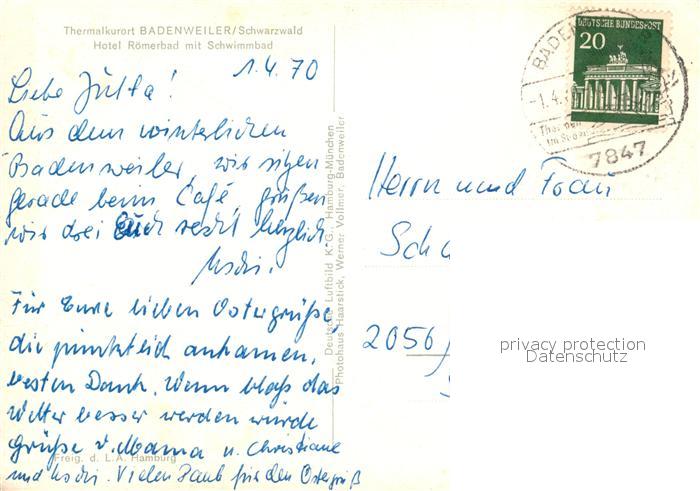 Thermalkurort BADENWEILER/Schwarzwald
Hotel Römerbad mit Schwimmbad
1.4.70
Liebe Jutta!
Aus dem winterlichen
Badenweiler, wir sitzen
gerade beim Café, grüßen
wir drei Euch recht herzlich.
Uschi.
Für Eure lieben Ostergrüße,
die pünktlich ankamen,
besten Dank. Wenn bloß das
Wetter besser werden würde
grüße v. Mama u. Christiane
und Uschi. Vielen Dank für den Ostergruß
Freig. d. L.A. Hamburg
Deutsche Luftbild K.-G., Hamburg-München
Photohaus Haarstick, Werner Vollmer, Badenweiler
DEUTSCHE BUNDESPOST
20
BADEN
-1.4.
7847
Herrn und Frau
Sch
2056
privacy protection
Datenschutz